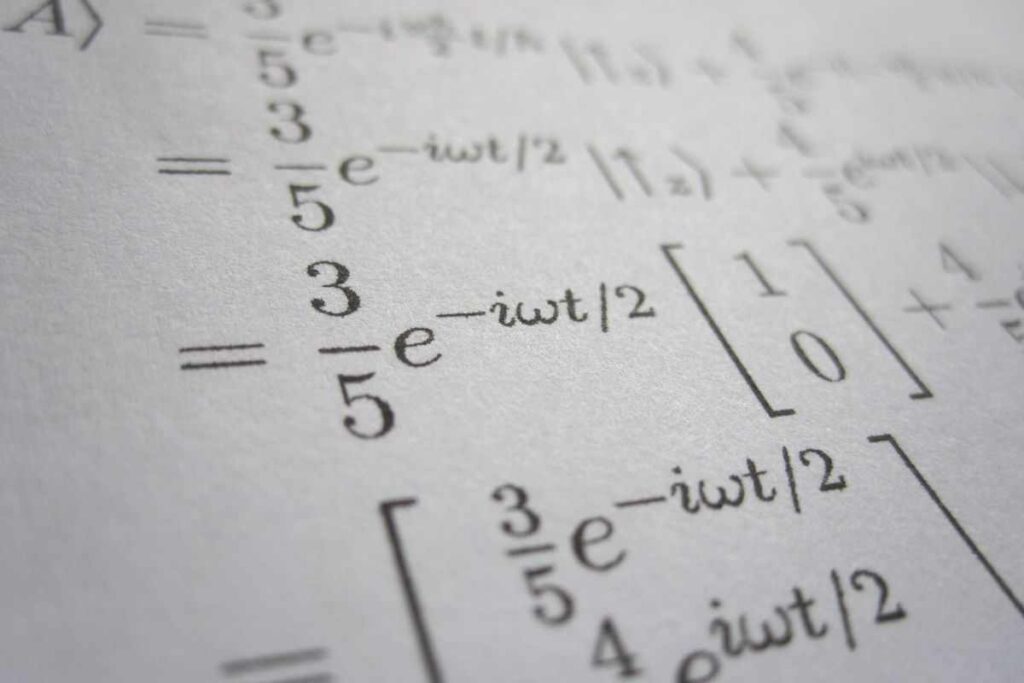 A⟩ = 3/5 e
= 3/5 e^{-iωt/2} |↑_z⟩ + 4/5 e^{iωt/2} |
= 3/5 e^{-iωt/2} [1 0] + 4
= [3/5 e^{-iωt/2}
4 e^{iωt/2}